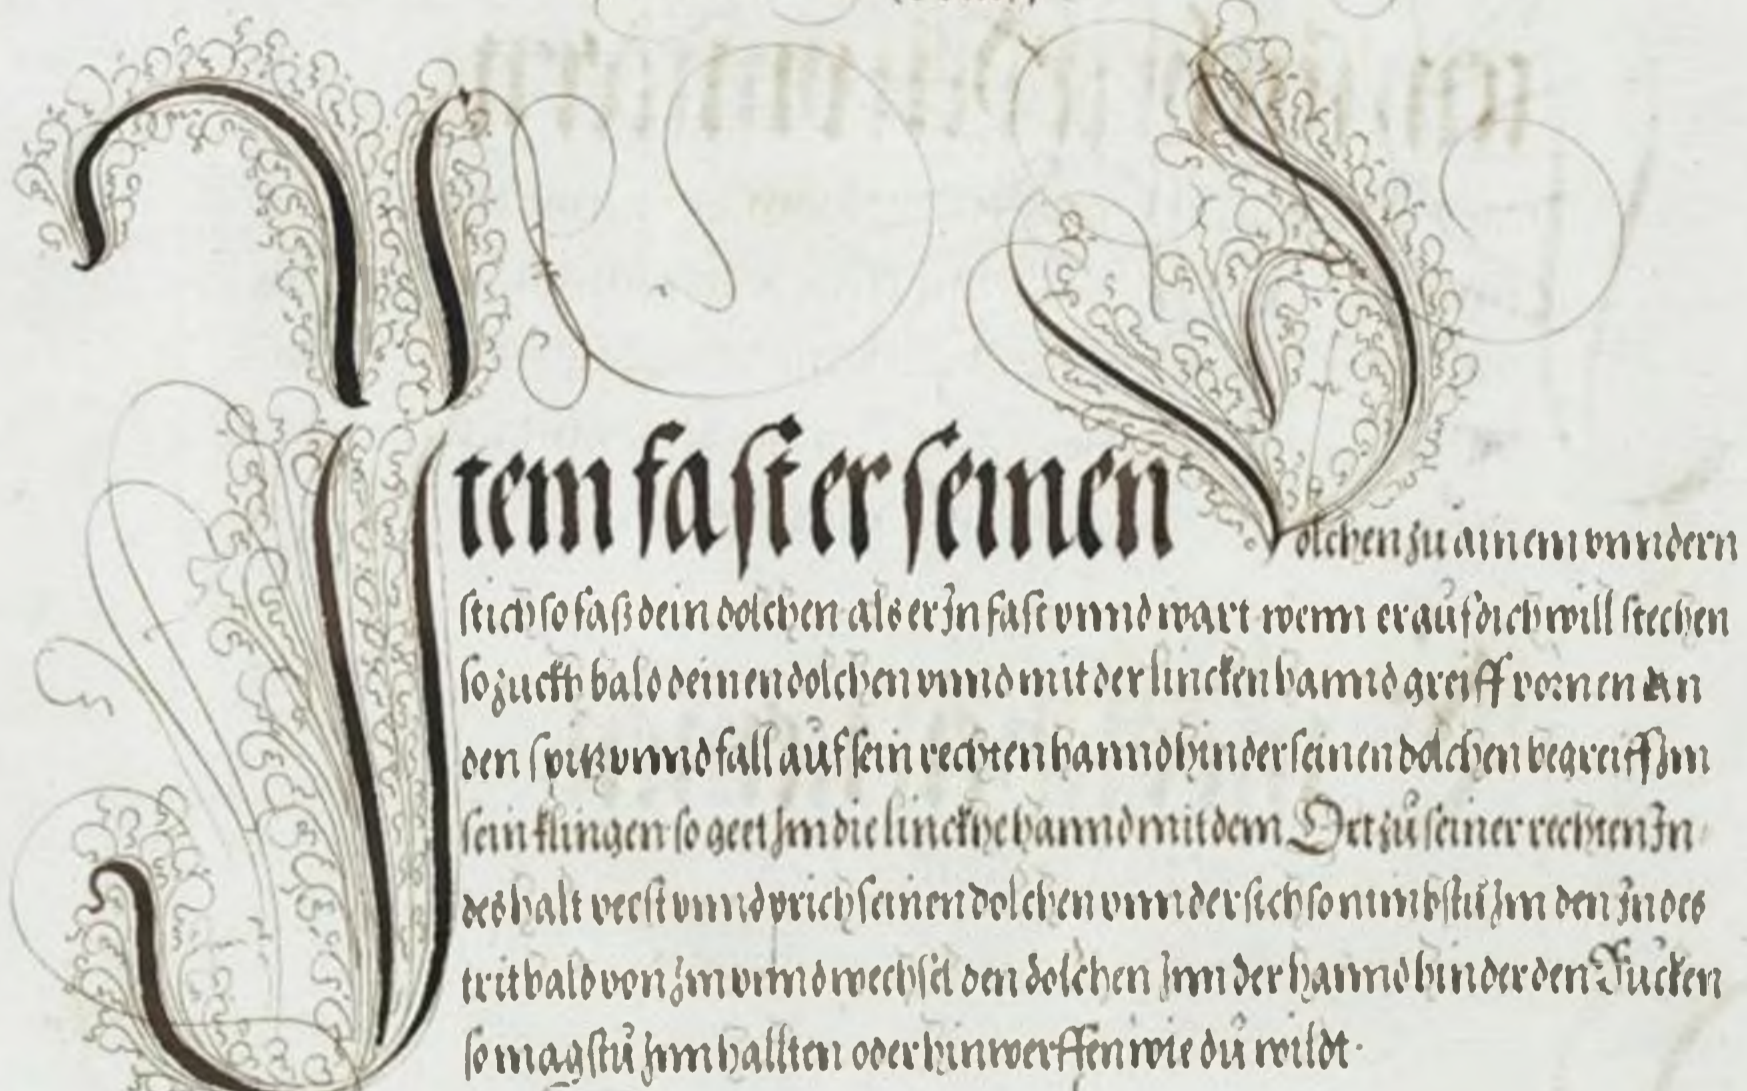 Item fast er seinen Dolchen zů ainem vnndern
stich so fass dein dolchen als er Jn fast vnnd wart wenn er auf dich will stechen
so zuckh bald deinen dolchen vnnd mit der lincken hannd greiff vornen an
den spitz vnnd fall auf sein rechten hannd hinder seinen dolchen begreiff Jm
sein klingen so geet Jm die linckhe hannd mit dem Ort zů seiner rechten In
des halt vest vnnd prich seinen dolchen vnnder sich so nimbstů Jm den Jn des
trit bald von Jm vnnd wechsel den dolchen Jnn der hannd hinder den Rucken
so magstů Jnn hallten oder hinwerffen wie dů wildt.